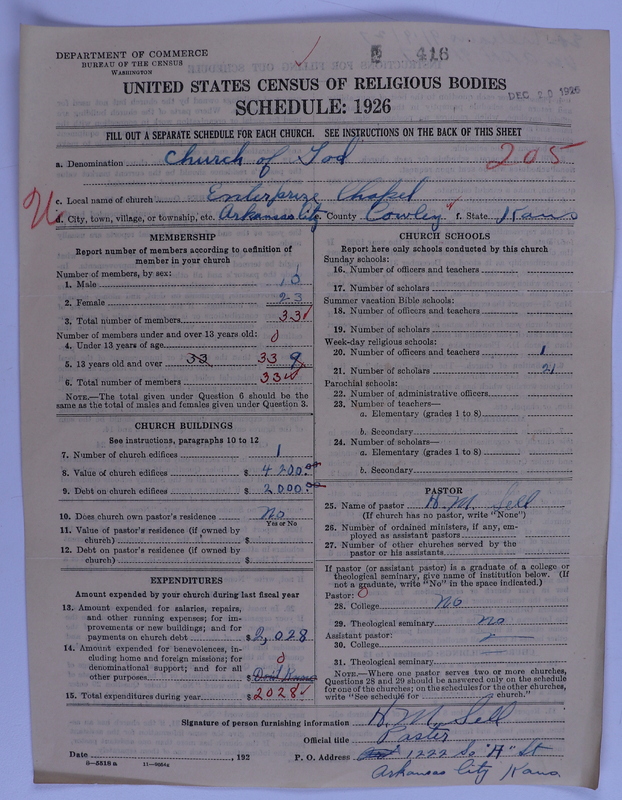 416
DEPARTMENT OF COMMERCE
BUREAU OF THE CENSUS
WASHINGTON
UNITED STATES CENSUS OF RELIGIOUS BODIES
DEC 20 1926
SCHEDULE: 1926
FILL OUT A SEPARATE SCHEDULE FOR EACH CHURCH. SEE INSTRUCTIONS ON THE BACK OF THIS SHEET
a. Denomination Church of God 205
c. Local name of church Enterprize Chapel
d. City, town, village, or township, etc. Arkansas City County Cowley f. State Kans
MEMBERSHIP
Report number of members according to definition of
member in your church
Number of members, by sex:
1. Male 10
2. Female 23
3. Total number of members 33
Number of members under and over 13 years old:
4. Under 13 years of age 0
5. 13 years old and over 33 33
6. Total number of members 33
NOTE.—The total given under Question 6 should be
same as the total of males and females given under Question 3.
CHURCH BUILDINGS
See instructions, paragraphs 10 to 12
7. Number of church edifices 1
8. Value of church edifices $ 4200.00
9. Debt on church edifices $ 2000.00
10. Does church own pastor's residence No
Yes or No
11. Value of pastor's residence (if owned by
church) $
12. Debt on pastor's residence (if owned by
church) $
EXPENDITURES
Amount expended by your church during last fiscal year
13. Amount expended for salaries, repairs,
and other running expenses; for im-
provements or new buildings; and for
payments on church debt $ 2,028
14. Amount expended for benevolences, in-
cluding home and foreign missions; for
denominational support; and for all
other purposes $ Dont Know 0
15. Total expenditures during year $ 2028
CHURCH SCHOOLS
Report here only schools conducted by this church
Sunday schools:
16. Number of officers and teachers
17. Number of scholars
Summer vacation Bible schools:
18. Number of officers and teachers
19. Number of scholars
Week-day religious schools:
20. Number of officers and teachers 1
21. Number of scholars 21
Parochial schools:
22. Number of administrative officers
23. Number of teachers—
a. Elementary (grades 1 to 8)
b. Secondary
24. Number of scholars—
a. Elementary (grades 1 to 8)
b. Secondary
PASTOR
25. Name of pastor H. M. Sell
(If church has no pastor, write "None")
26. Number of ordained ministers, if any, em-
ployed as assistant pastors
27. Number of other churches served by the
pastor or his assistants
If pastor (or assistant pastor) is a graduate of a college or
theological seminary, give name of institution below. (If
not a graduate, write "No" in the space indicated.)
Pastor: 0
28. College No
29. Theological seminary No
Assistant pastor:
30. College
31. Theological seminary
NOTE.—Where one pastor serves two or more churches,
Questions 28 and 29 should be answered only on the schedule
for one of the churches; on the schedules for the other churches,
write "See schedule for church."
Signature of person furnishing information H. M. Sell
Official title Paster
Date , 192 P. O. Address 1222 So "H" St
8—5518a 11—
Arkansas City Kans